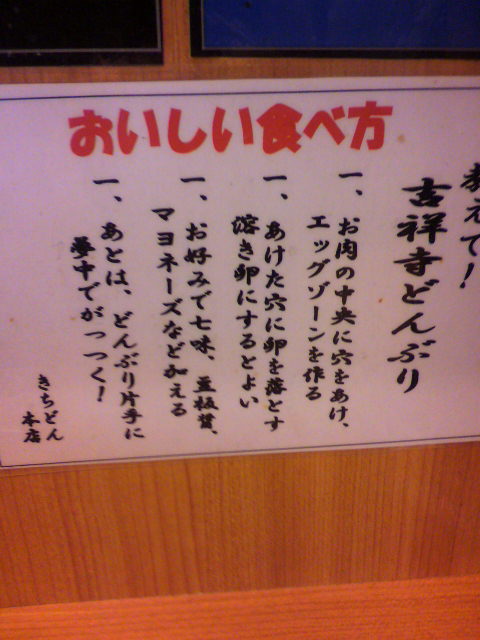 おいしい食べ方
教えて！
吉祥寺どんぶり
一、お肉の中央に穴をあけ、
エッグゾーンを作る
一、あけた穴に卵を落とす
溶き卵にするとよい
一、お好みで七味、豆板醤、
マヨネーズなど加える
一、あとは、どんぶり片手に
夢中でがっつく！
きちどん
本店